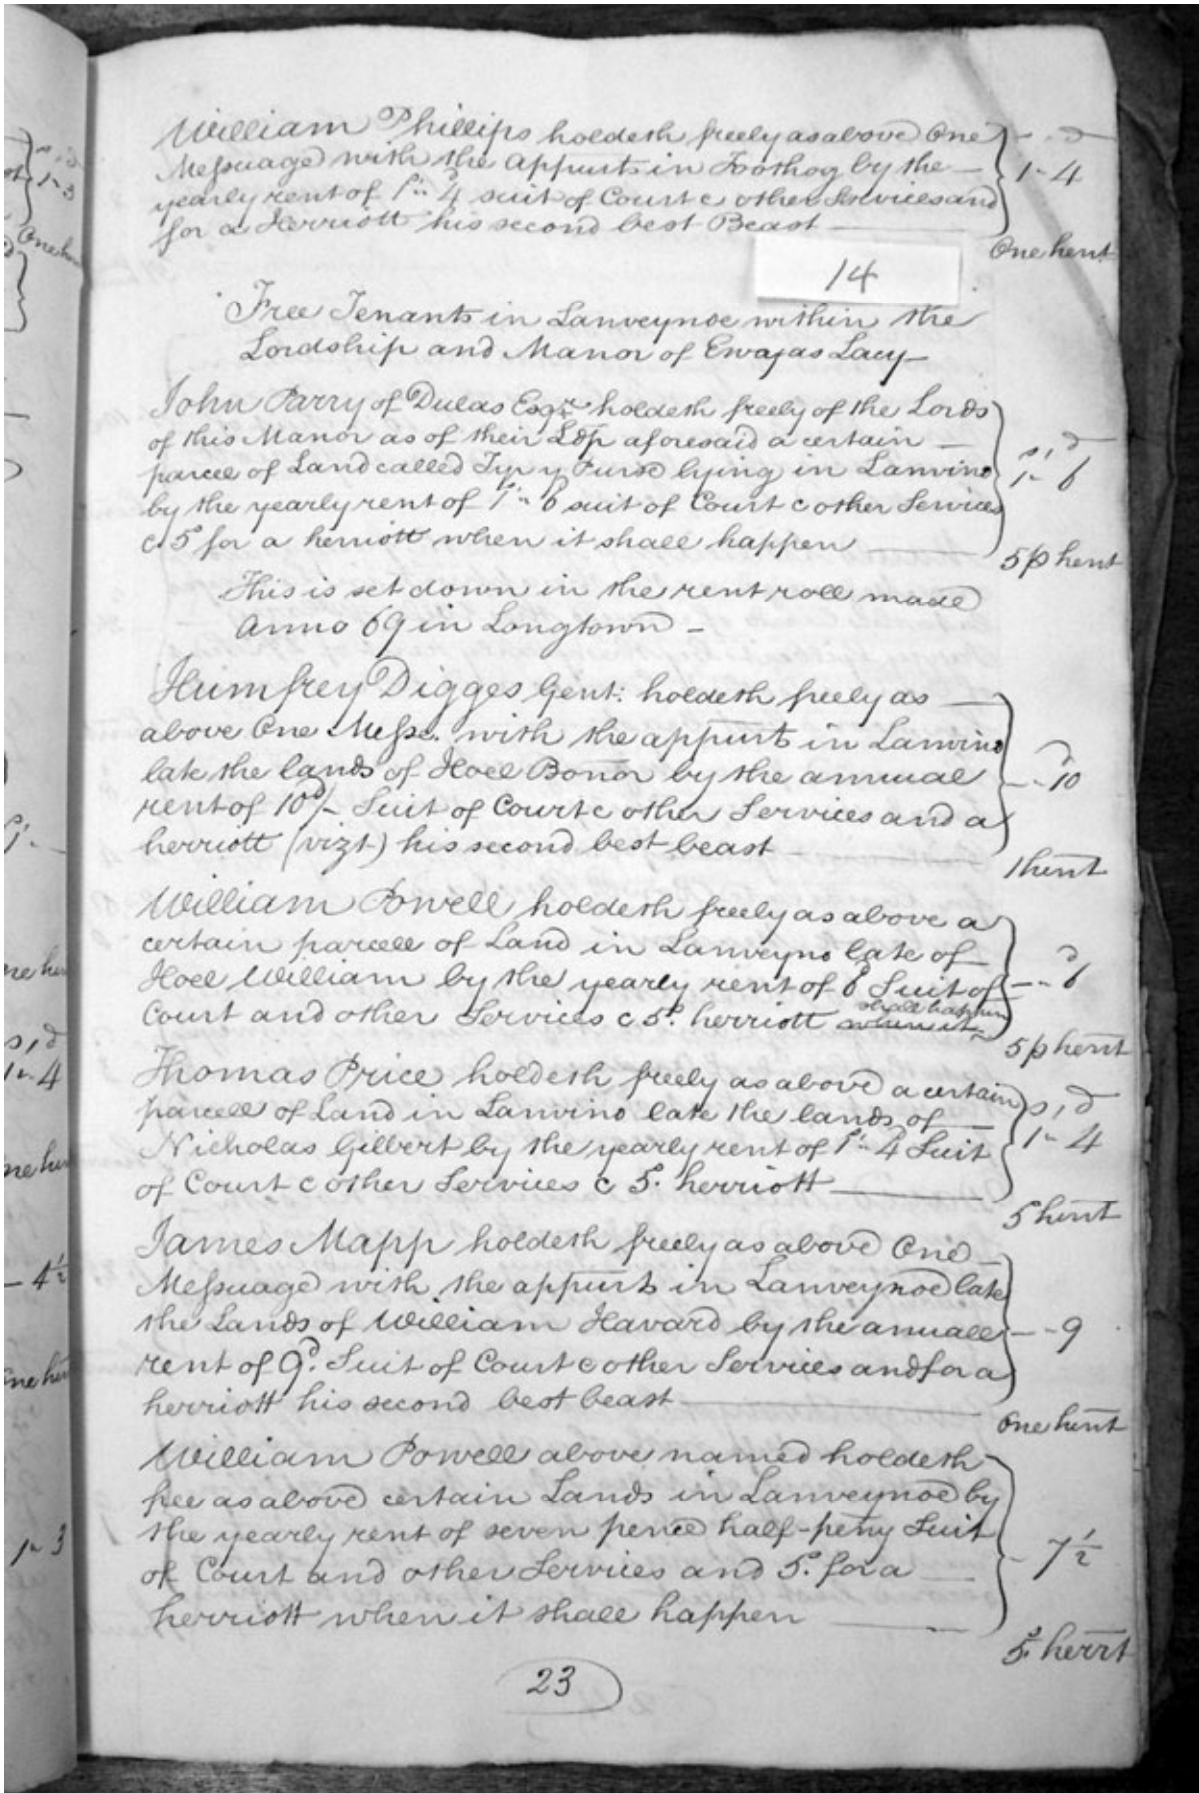 William Phillips holdeth freely as above One
Messuage with the appurts in Foothog by the
yearly rent of 1s " 4d suit of Court & other Services and
for a Herriott his second best Beast
- - d
1 - 4
One herrt
14
Free Tenants in Lanveynoe within the
Lordship and Manor of Ewajas Lacy
John Parry of Dulas Esqr. holdeth freely of the Lords
of this Manor as of their Ldp aforesaid a certain
parcel of Land called Tyr y Purse lying in Lanvino
by the yearly rent of 1s " 6 suit of Court & other Services
& 5s for a herriott when it shall happen
s , d
1 " 6
5 p herrt
This is set down in the rent roll made
Anno 69 in Longtown -
Humfrey Digges Gent: holdeth freely as
above One Messe. with the appurts in Lanvino
late the lands of Hoel Bonor by the annual
rent of 10d/- Suit of Court & other Services and a
herriott (vizt) his second best beast
d
- - 10
1 herrt
William Powell holdeth freely as above a
certain parcell of Land in Lanveyno late of
Hoel William by the yearly rent of 6d Suit of
Court and other Services & 5s. herriott when it
shall happen
d
- - 6
5 p herrt
Thomas Price holdeth freely as above a certain
parcell of Land in Lanvino late the lands of
Nicholas Gilbert by the yearly rent of 1s " 4 Suit
of Court & other Services & 5s. herriott
s , d
1 " 4
5s herrt
James Mapp holdeth freely as above One
Messuage with the appurts in Lanveynoe late
the Lands of William Havard by the annuall
rent of 9d. Suit of Court & other Services and for a
herriott his second best beast
- - 9
One herrt
William Powell above named holdeth
free as above certain Lands in Lanveynoe by
the yearly rent of seven pence half-peny Suit
of Court and other Services and 5s. for a
herriott when it shall happen
- 7 1/2
5s. herrt
23